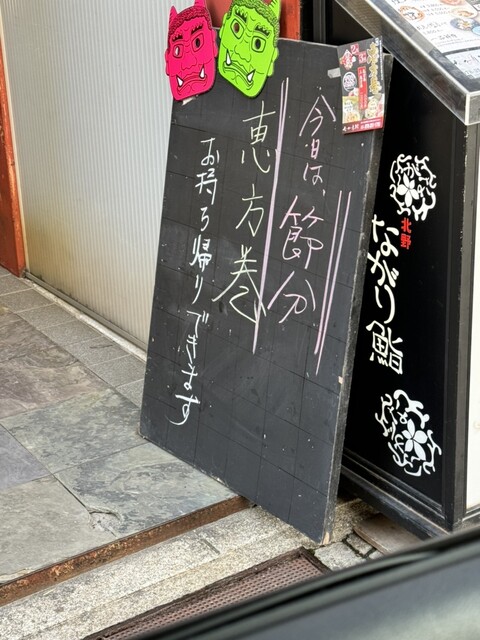 今日は、節分
恵方巻
お持ち帰りできます
北野
ながり鮨